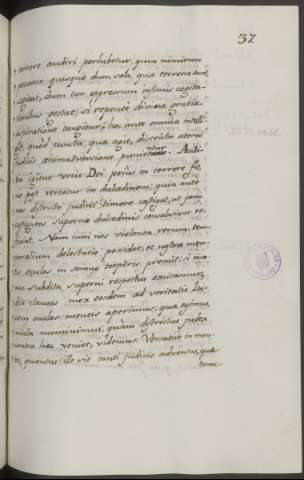 37.
terrore audiri perhibetur, quia nimirum
peccator quisque dum sola, quæ terrena sunt,
cogitat, dum cor oppressum infimis cogita-
tionibus gestat, si repente divinæ gratiæ
aspiratione tangitur, hoc ante omnia intelli-
git, quod cuncta, quæ agit, districta æterni
Judicis animadversione punientur. Audi-
tio igitur vocis Dei prius in terrore fit,
ut post vertatur in dulcedinem; quia ante
nos districto judicii timore castigat, ut jam
castigatos supernæ dulcedinis consolatione re-
ficiat. Nam cum nos violenta rerum tem-
poralium delectatio possidet, et nostræ men-
tis oculos in somno torporis premit; si ma-
nu subdita superni respectus excitamur,
diu clausos mox eosdem ad veritatis lu-
cem oculos mentis aperimus, quæ egimus
mala meminimus, quam districtus judex
contra hæc veniet, videmus. Versatur in men-
te, quantus ille sit tanti Judicis adventus, quæ
tunc